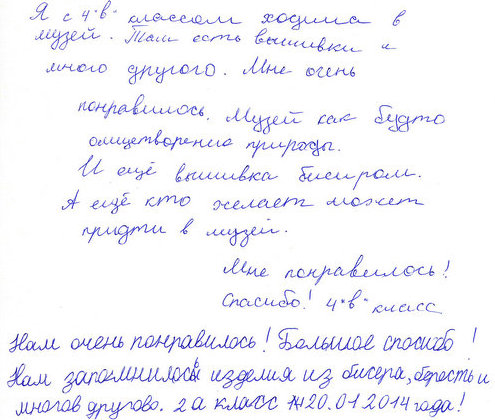 Я с 4 "в" классом ходила в
музей. Там есть вышивки и
много другого. Мне очень
понравилось. Музей как будто
олицетворение природы.
И ещё вышивка бисиром.
А ещё кто желает может
придти в музей.
Мне понравилось!
Спасибо! 4 "в" класс
Нам очень понравилось! Большое спосибо!
Нам запомнилось изделия из бисера, бересты и
многова другово. 2а класс 20.01.2014 года!